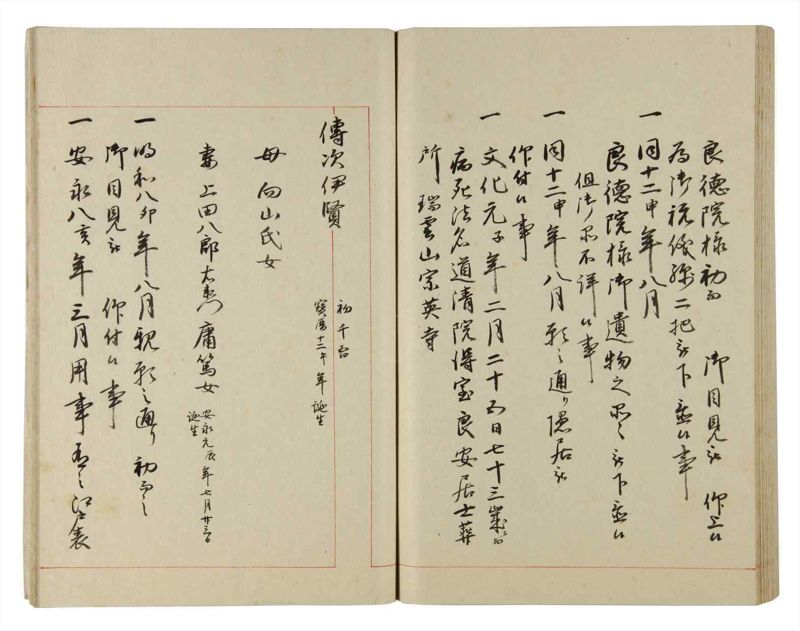 良徳院様初而 御目見被 仰上候
為御祝儀綿二把被下置候事
一同十二申年八月
良徳院様御遺物之品々被下置候
但御品不詳候事
一同十二申年八月願之通り隠居被
仰付候事
一文化元子年二月二十五日七十三歳ニ而
病死法名道清院得室良安居士葬
所瑞雲山宗英寺
傳次伊賢 初千台
寳暦十二午年誕生
母向山氏女
妻上田八郎右衛門庸篤女 安永元辰年七月廿三日
誕生
一明和八卯年八月親願之通り初而之
御目見被 仰付候事
一安永八亥年三月用事有之江表